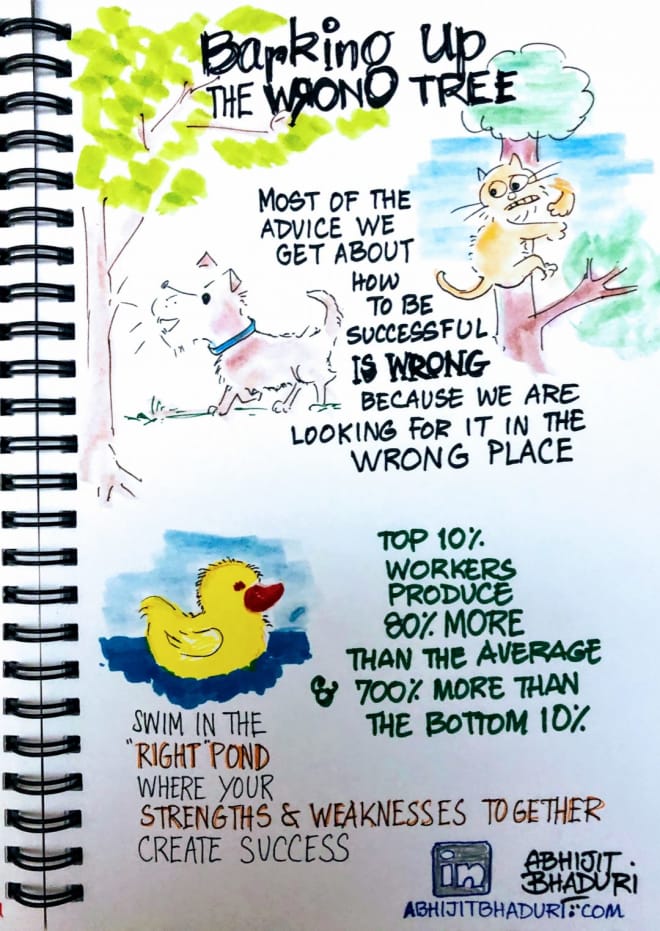 Barking Up
THE WRONG TREE
MOST OF THE
ADVICE WE
GET ABOUT
HOW
TO BE
SUCCESSFUL
IS WRONG
BECAUSE WE ARE
LOOKING FOR IT IN THE
WRONG PLACE
TOP 10%
WORKERS
PRODUCE
80% MORE
THAN THE AVERAGE
& 700% MORE THAN
THE BOTTOM 10%
SWIM IN THE
"RIGHT" POND
WHERE YOUR
STRENGTHS & WEAKNESSES TOGETHER
CREATE SUCCESS
in
ABHIJIT
BHADURI
ABHIJITBHADURI.COM